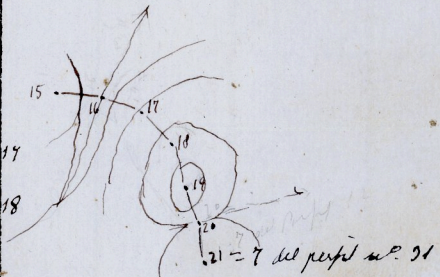 15
16
17
17
18
18
19
20
21 = 7 del perfil nº. 31